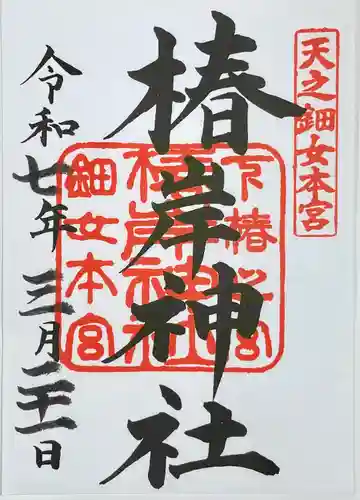 天之鈿女本宮
椿岸神社
下椿之宮
椿岸神社
鈿女本宮
令和七年三月二十一日